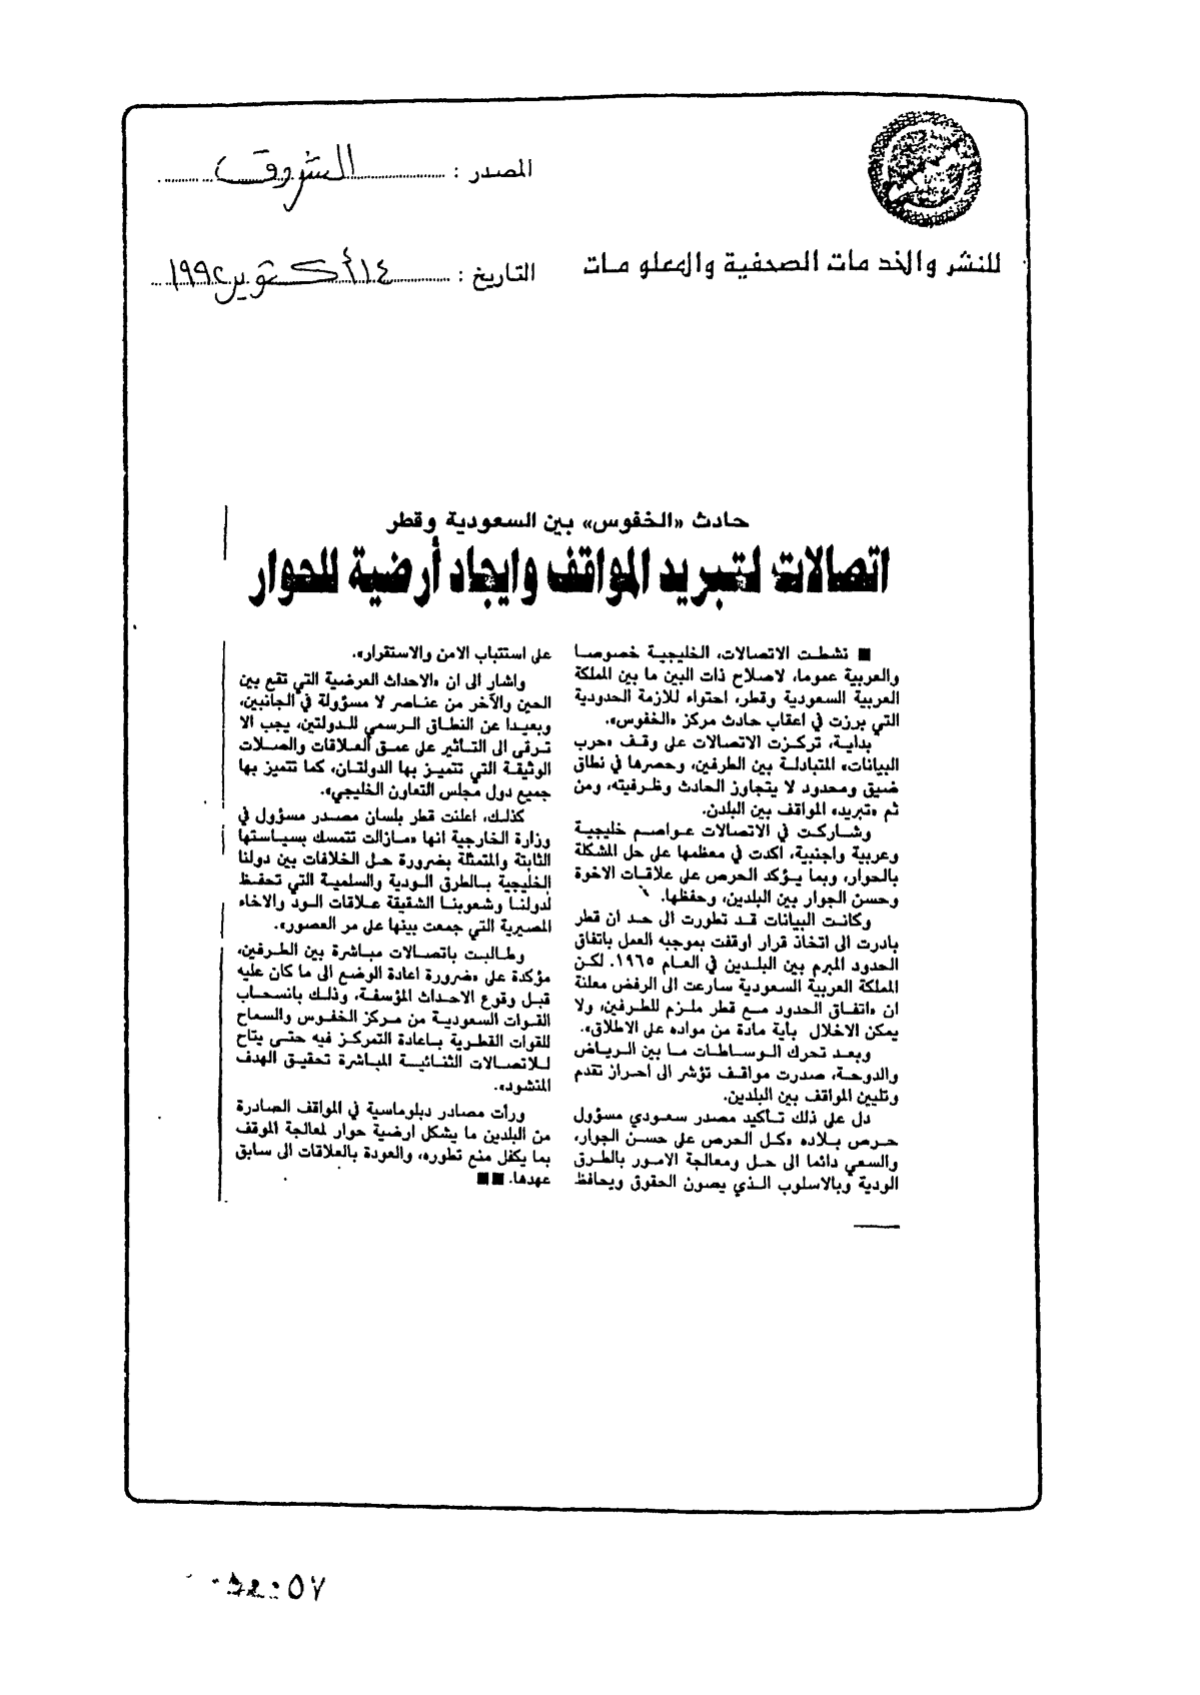 المصدر : الشروق
للنشر والخدمات الصحفية والمعلومات
التاريخ : ١٤ أكتوبر ١٩٩٢
حادث «الخفوس» بين السعودية وقطر
اتصالات لتبريد المواقف وايجاد أرضية للحوار
■ نشطت الاتصالات، الخليجية خصوصا
والعربية عموما، لاصلاح ذات البين ما بين المملكة
العربية السعودية وقطر، احتواء للازمة الحدودية
التي برزت في اعقاب حادث مركز «الخفوس».
بداية، تركزت الاتصالات على وقف «حرب
البيانات» المتبادلة بين الطرفين، وحصرها في نطاق
ضيق ومحدود لا يتجاوز الحادث وظرفيته، ومن
ثم «تبريد» المواقف بين البلدن.
وشاركت في الاتصالات عواصم خليجية
وعربية واجنبية، اكدت في معظمها على حل المشكلة
بالحوار، وبما يؤكد الحرص على علاقات الاخوة
وحسن الجوار بين البلدين، وحفظها.
وكانت البيانات قد تطورت الى حد ان قطر
بادرت الى اتخاذ قرار اوقفت بموجبه العمل باتفاق
الحدود المبرم بين البلدين في العام ١٩٦٥. لكن
المملكة العربية السعودية سارعت الى الرفض معلنة
ان «اتفاق الحدود مع قطر ملزم للطرفين، ولا
يمكن الاخلال بأية مادة من مواده على الاطلاق».
وبعد تحرك الوساطات ما بين الرياض
والدوحة، صدرت مواقف تؤشر الى احراز تقدم
وتليين المواقف بين البلدين.
دل على ذلك تأكيد مصدر سعودي مسؤول
حرص بلاده «كل الحرص على حسن الجوار،
والسعي دائما الى حل ومعالجة الامور بالطرق
الودية وبالاسلوب الذي يصون الحقوق ويحافظ
على استتباب الامن والاستقرار».
واشار الى ان «الاحداث العرضية التي تقع بين
الحين والآخر من عناصر لا مسؤولة في الجانبين،
وبعيدا عن النطاق الرسمي للدولتين، يجب الا
ترقى الى التأثير على عمق العلاقات والصلات
الوثيقة التي تتميز بها الدولتان، كما تتميز بها
جميع دول مجلس التعاون الخليجي».
كذلك، اعلنت قطر بلسان مصدر مسؤول في
وزارة الخارجية انها «مازالت تتمسك بسياستها
الثابتة والمتمثلة بضرورة حل الخلافات بين دولنا
الخليجية بالطرق الودية والسلمية التي تحفظ
لدولنا وشعوبنا الشقيقة علاقات الود والاخاء
المصيرية التي جمعت بينها على مر العصور».
وطالبت باتصالات مباشرة بين الطرفين،
مؤكدة على «ضرورة اعادة الوضع الى ما كان عليه
قبل وقوع الاحداث المؤسفة، وذلك بانسحاب
القوات السعودية من مركز الخفوس والسماح
للقوات القطرية باعادة التمركز فيه حتى يتاح
للاتصالات الثنائية المباشرة تحقيق الهدف
المنشود».
ورأت مصادر دبلوماسية في المواقف الصادرة
من البلدين ما يشكل ارضية حوار لمعالجة الموقف
بما يكفل منع تطوره، والعودة بالعلاقات الى سابق
عهدها. ■■